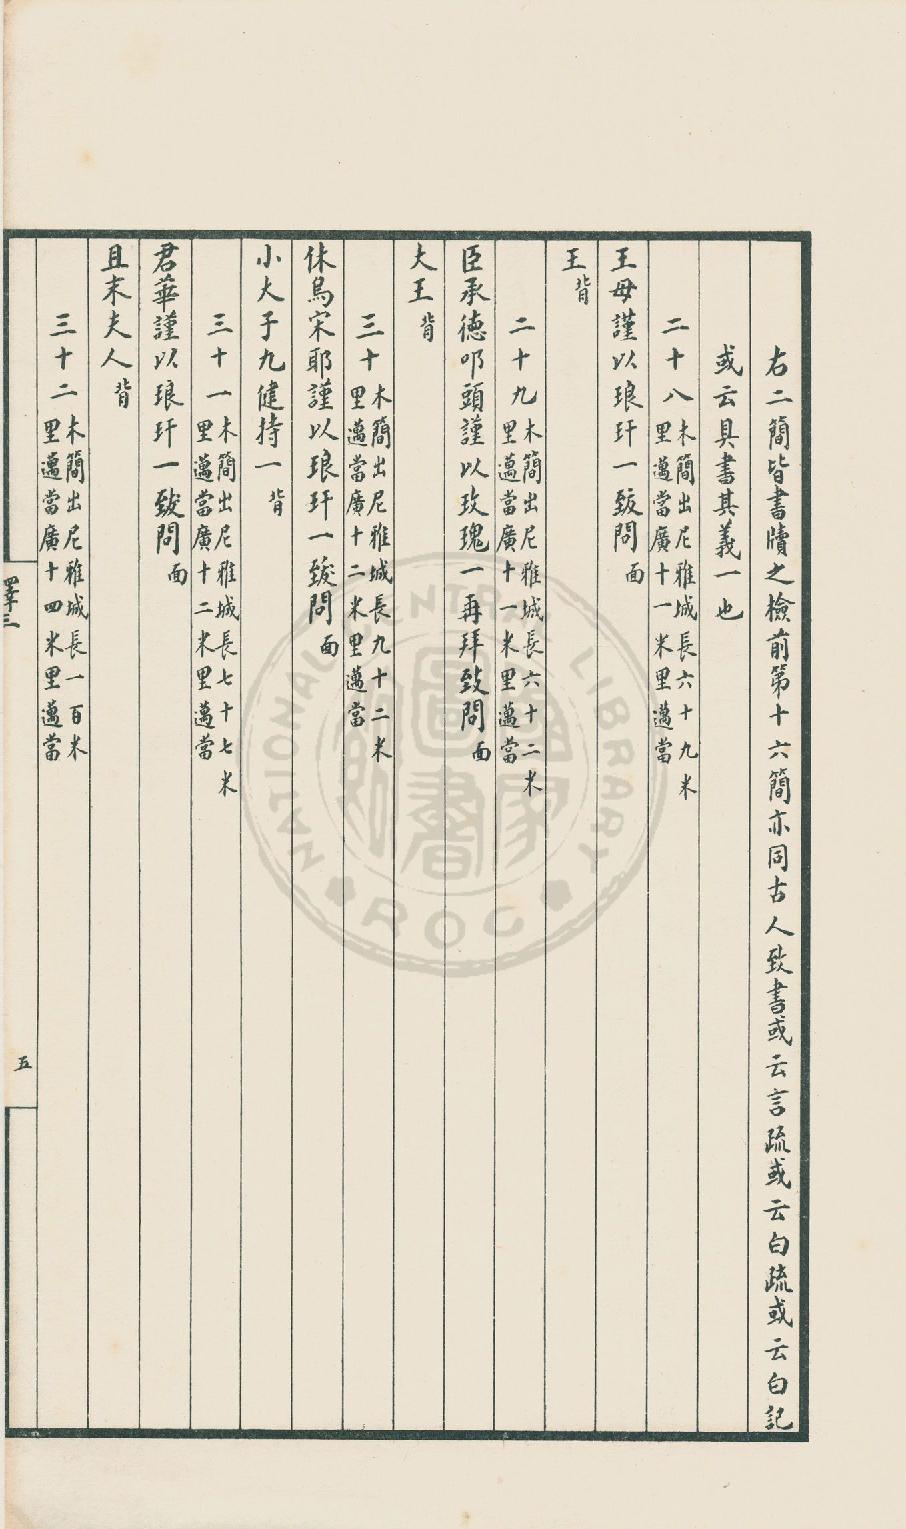 右二簡皆書牘之檢前第十六簡亦同古人致書或云言疏或云白疏或云白記
或云具書其義一也
二十八木簡出尼雅城長六十九米
里邁當廣十一米里邁當
王母謹以琅玕一致問面
王背
二十九木簡出尼雅城長六十二米
里邁當廣十一米里邁當
臣承德叩頭謹以玫瑰一再拜致問面
大王背
三十木簡出尼雅城長九十二米
里邁當廣十二米里邁當
休烏宋耶謹以琅玕一致問面
小大子九健持一背
三十一木簡出尼雅城長七十七米
里邁當廣十二米里邁當
君華謹以琅玕一致問面
且末夫人背
三十二木簡出尼雅城長一百米
里邁當廣十四米里邁當
釋三
五
NATIONAL CENTRAL LIBRARY
ROC
國家圖書館